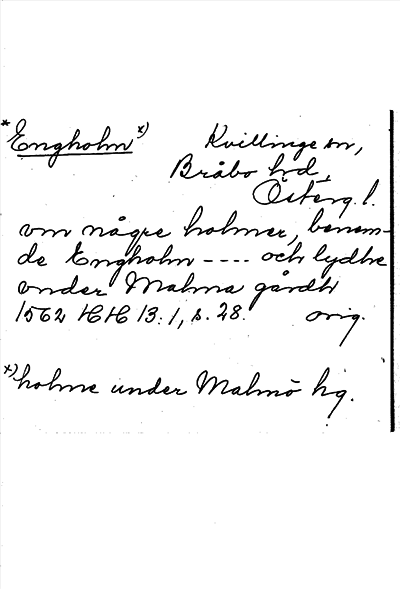 *Engholm x)
Kvillinge sn,
Bråbo hd,
Österg. l.
vm någre holmer, benem-
de Engholm ---- och lydhe
vnder Malma gårdh
1562 HH 13:1, s. 28. orig.
x) holme under Malmö hg.